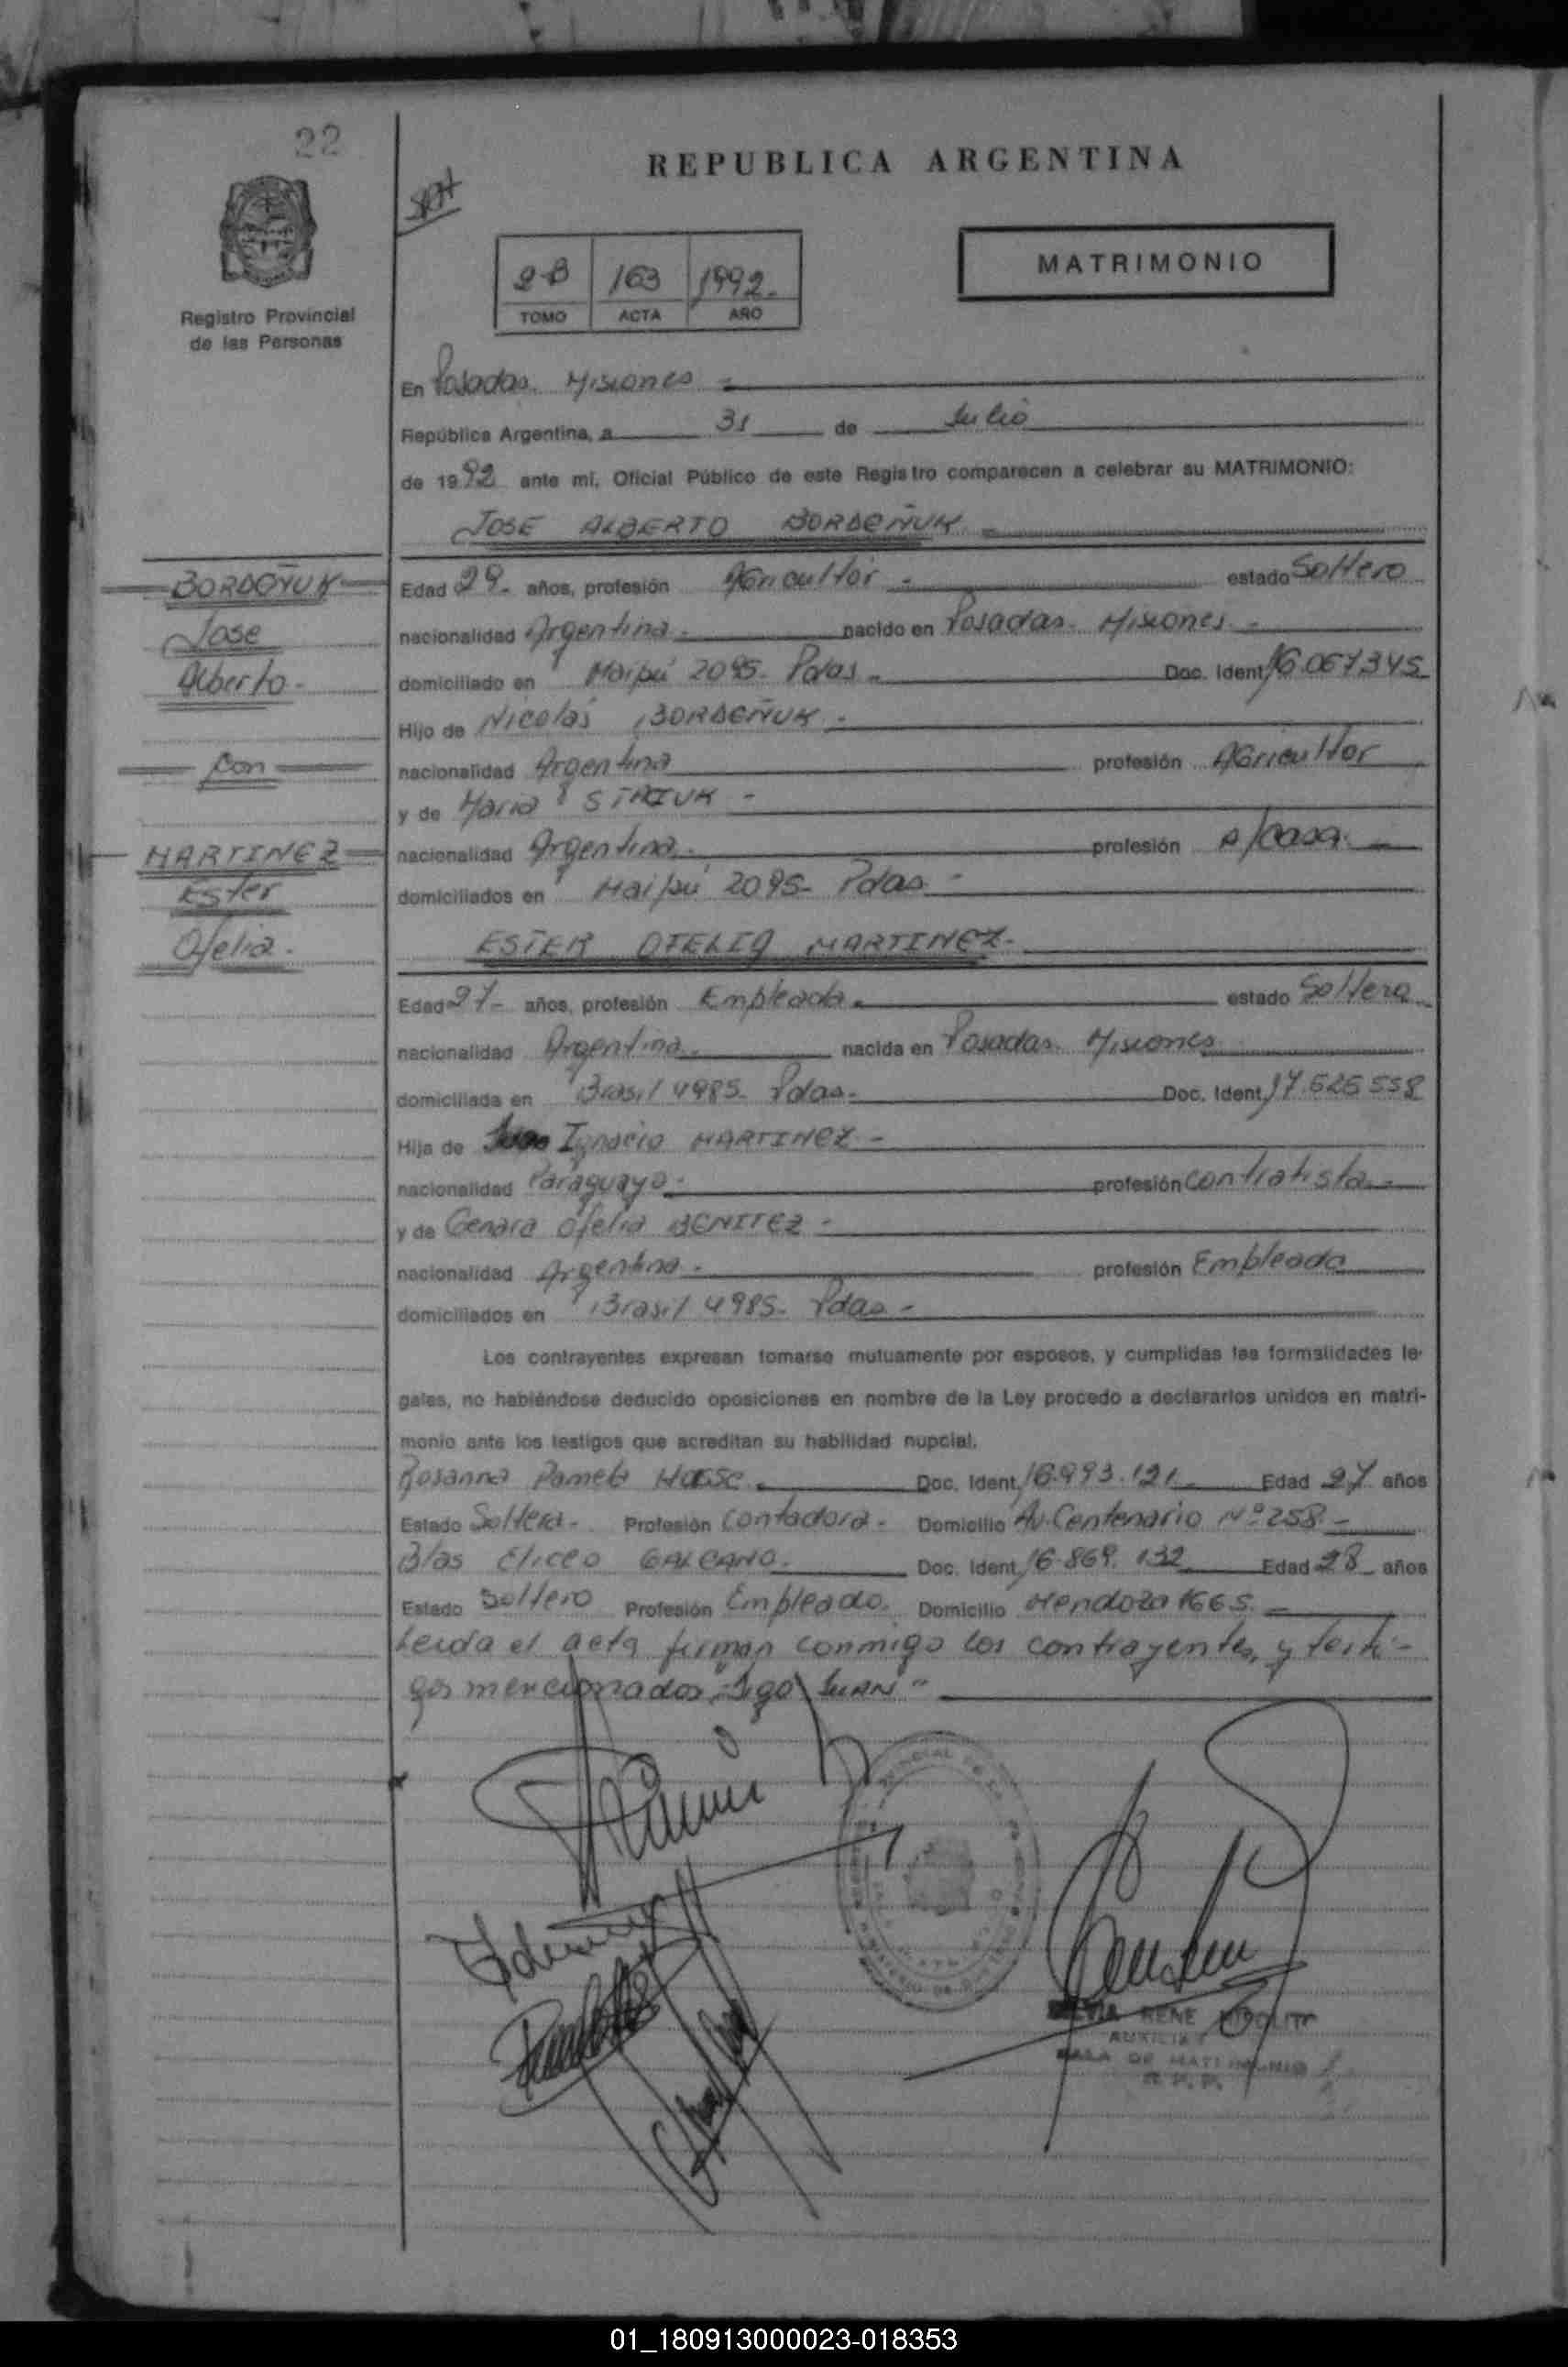 22
REPUBLICA ARGENTINA
Registro Provincial
de las Personas
2-B 163 1992.
TOMO ACTA AÑO
MATRIMONIO
En Posadas. Misiones
República Argentina, a 31 de Julio
de 1992 ante mi, Oficial Público de este Registro comparecen a celebrar su MATRIMONIO:
JOSE ALBERTO BORDEÑUK
BORDEÑUK
Jose
Alberto.
Con
MARTINEZ
Ester
Ofelia.
Edad 29. años, profesión Agricultor estado Soltero
nacionalidad Argentina. nacido en Posadas. Misiones
domiciliado en Maipú 2095. Pdas. Doc. Ident. 16.067.345
Hijo de Nicolás BORDEÑUK
nacionalidad Argentina profesión Agricultor
y de Maria
nacionalidad Argentina. profesión s/casa.
domiciliados en Maipú 2095. Pdas.
ESTER OFELIA MARTINEZ.
Edad 27 años, profesión Empleada. estado Soltera
nacionalidad Argentina. nacida en Posadas. Misiones
domiciliada en Brasil 4985. Pdas. Doc. Ident. 17.626.558
Hija de Ignacio MARTINEZ
nacionalidad Paraguayo. profesión Contratista
y de Genara Ofelia BENITEZ
nacionalidad Argentina. profesión Empleada
domiciliados en Brasil 4985. Pdas
Los contrayentes expresan tomarse mutuamente por esposos, y cumplidas las formalidades le-
gales, no habiéndose deducido oposiciones en nombre de la Ley procedo a declararlos unidos en matri-
monio ante los testigos que acreditan su habilidad nupcial.
Rosanna Pamela Doc. Ident. 16.993.121 Edad 27 años
Estado Soltera. Profesión Contadora. Domicilio Av. Centenario Nº 258.
Blas Eliceo GALEANO. Doc. Ident. 16.869.132 Edad 28 años
Estado Soltero Profesión Empleado. Domicilio Mendoza 1665.
Leida el acta firman conmigo los contrayentes, y testi-
gos mencionados. Digo "JUAN"
RENE
AUXILIAR
SALA DE MATRIMONIO
R. P. P.
01_180913000023-018353